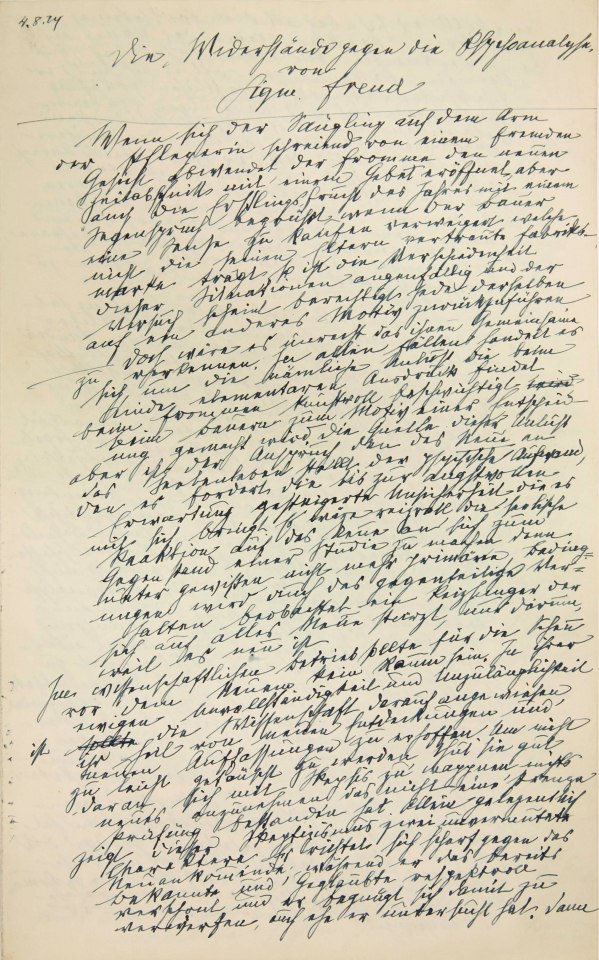 4.8.24
Die Widerstände gegen die Psychoanalyse.
von
Sigm. Freud
Wenn sich der Säugling auf dem Arm
der Pflegerin schreiend von einem fremden
Gesicht abwendet der Fromme den neuen
Zeitabschnitt mit einem Gebet eröffnet aber
auch die Erstlingsfrucht des Jahres mit einem
Segenspruch begrüßt wenn der Bauer
eine Sense zu kaufen verweigert welche
nicht die seinen Eltern vertraute Fabriks-
marke trägt so ist die Verschiedenheit
dieser Situationen augenfällig und der
Versuch scheint berechtigt jede derselben
auf ein anderes Motiv zurückzuführen
Doch wäre es unrecht das ihnen Gemeinsame
zu verkennen. In allen Fällen handelt es
sich um die nämliche Unlust die beim
Kinde elementaren Ausdruck findet
beim Frommen kunstvoll beschwichtigt wird
beim Bauern zum Motiv einer Entscheid-
ung gemacht wird. die Quelle dieser Unlust
aber ist der Anspruch den das Neue an
das Seelenleben stellt der psychische Aufwand,
den es fordert die bis zur angstvollen
Erwartung gesteigerte Unsicherheit die es
mit sich bringt Es wäre reizvoll die seelische
Reaktion auf das Neue an sich zum
Gegenstand einer Studie zu machen denn
unter gewissen nicht mehr primären Beding-
ungen wird auch das gegenteilige Ver-
halten beobachtet ein Reizhunger der
sich auf alles Neue stürzt nur darum
weil es neu ist
Im wissenschaftlichen Betrieb sollte für die Scheu
vor dem Neuen kein Raum sein. In ihrer
ewigen Unvollständigkeit und Unzulänglichkeit
ist sollte die Wissenschaft darauf angewiesen
ihr Heil von neuen Entdeckungen und
neuen Auffassungen zu erhoffen. Um nicht
zu leicht getäuscht zu werden tut sie gut
daran sich mit Skepsis zu wappnen nichts
neues anzunehmen das nicht eine strenge
Prüfung bestanden hat. Allein gelegentlich
zeigt dieser Skeptizismus zwei unvermutete
Charaktere. Er richtet sich scharf gegen das
Neuankomende, während er das bereits
bekannte und Geglaubte respektvoll
verschont und er begnügt sich damit zu
verwerfen, auch ehe er untersucht hat. Dann